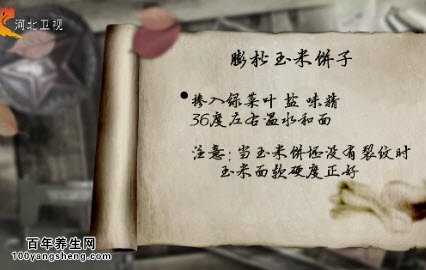 河北卫视
膨松玉米饼子
掺入绿菜叶 盐 味精
36度左右温水和面
注意:当玉米饼还没有裂纹时
玉米面软硬度正好
百年养生网
100yangsheng.com